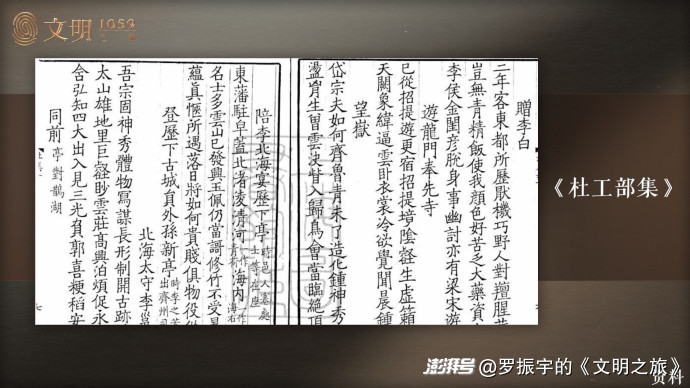 文明
1059
《杜工部集》
贈李白
二年客東都所歷厭機巧野人對羶腥
豈無青精飯使我顏色好苦乏大藥資
李侯金閨彥脫身事幽討亦有梁宋遊
遊龍門奉先寺
已從招提遊更宿招提境陰壑生虛籟
天闕象緯逼雲臥衣裳冷欲覺聞晨鍾
望嶽
岱宗夫如何齊魯青未了造化鍾神秀
盪胷生曾雲決眥入歸鳥會當臨絶頂
陪李北海宴歷下亭 時邑人蹇處士等在座
東藩駐皁蓋北渚淩清河 海內
名士多雲山已發興玉佩仍當謌修竹不受
蘊真愜所遇落日將如何貴賤俱物役
登歷下古城員外孫新亭 時李之芳出齊州
北海太守李邕
吾宗固神秀體物寫謀長形制開古跡
太山雄地里巨壑眇雲莊高興泊煩促永
含弘知四大出入見三光負郭喜粳稻安
同前 亭對鵲湖
澎湃号@罗振宇的《文明之旅》
资料